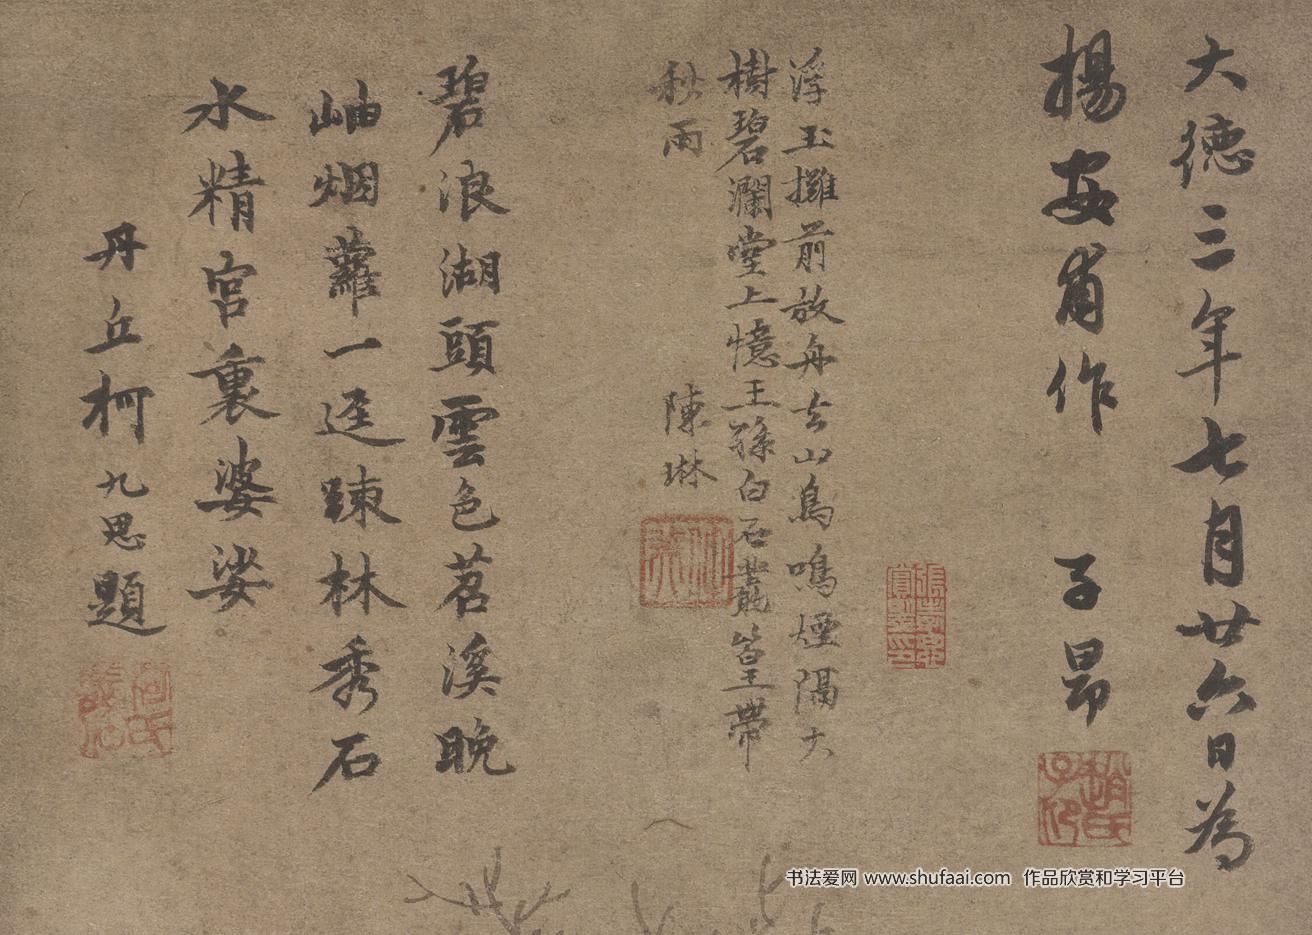 大德三年七月廿六日為
揚安甫作 子昂
趙氏子昂
浮玉攤前放舟去山鳥鳴煙隔大
樹碧瀾堂上憶王孫白石叢篁帶
秋雨 陳琳
碧浪湖頭雲色茗溪晚
岫烟蘿一逕踈林秀石
水精宮裏婆娑
丹丘柯九思題
柯氏敬仲
书法爱网 www.shufaai.com 作品欣赏和学习平台